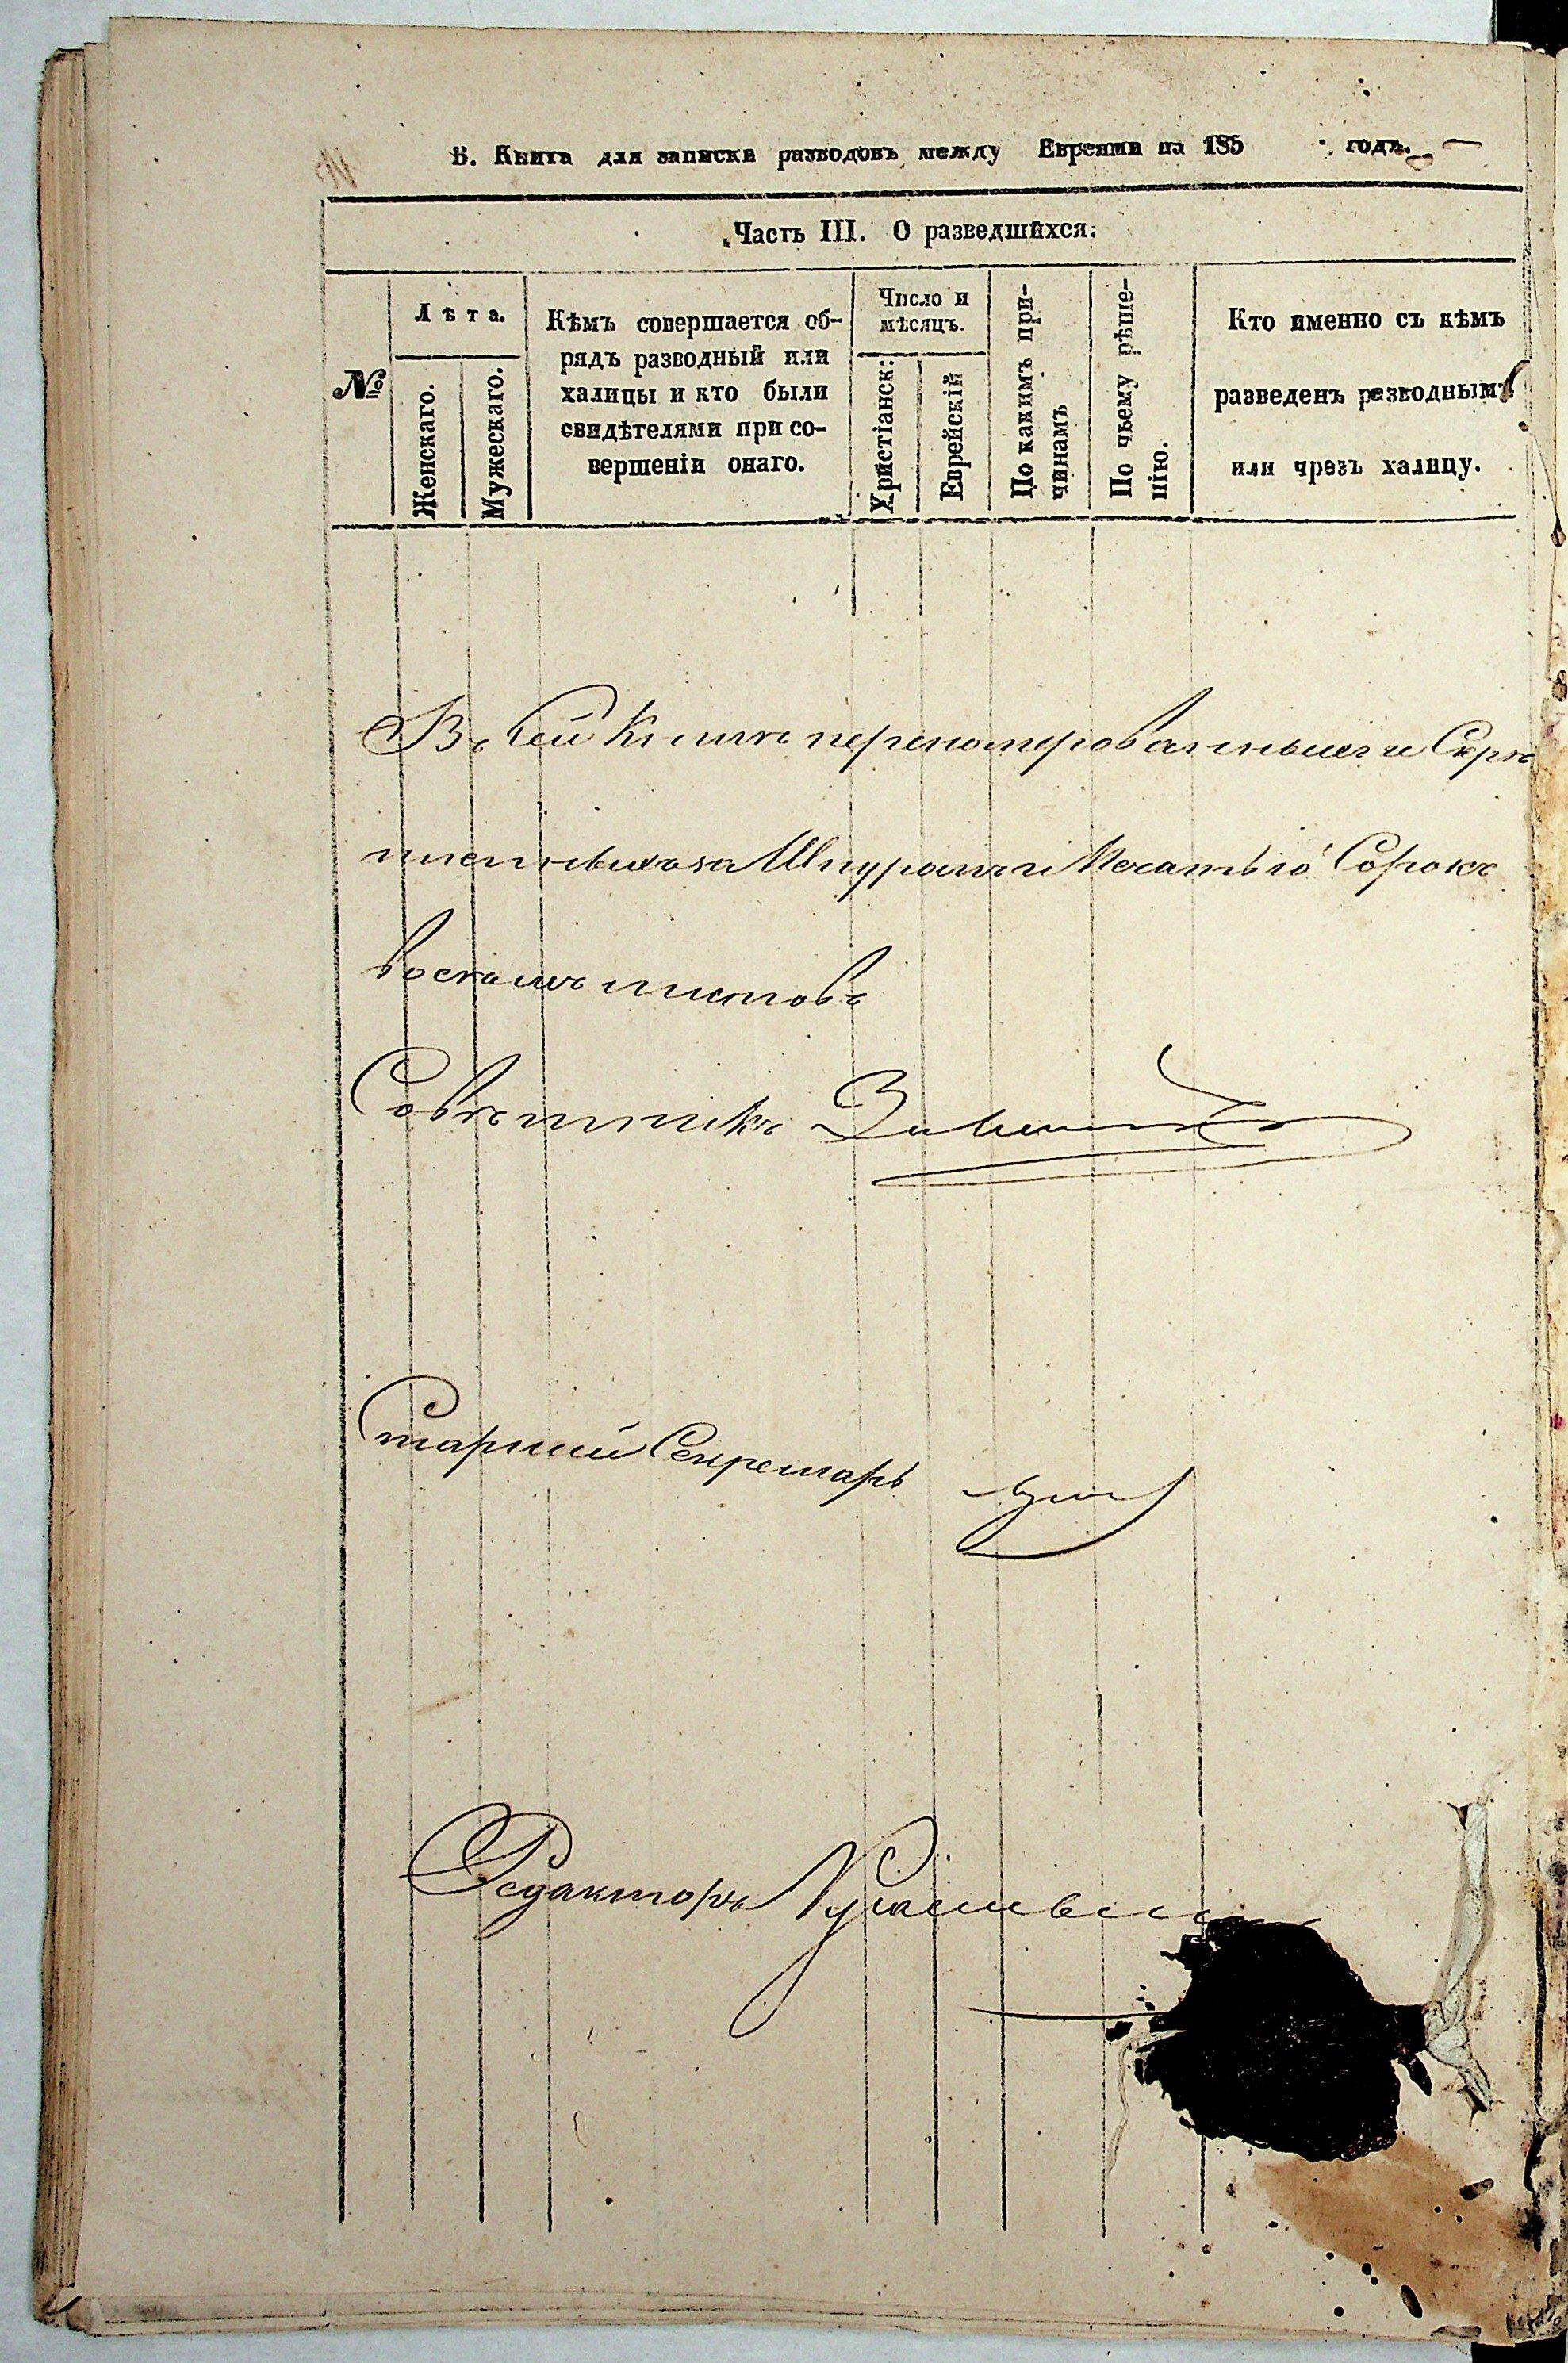 В. Книга для записки разводовъ между Евреями на 185 годъ.
Часть III. О разведшихся.
№
Лѣта.
Женскаго.
Мужескаго.
Кѣмъ совершается об-
рядъ разводный или
халицы и кто были
свидѣтелями при со-
вершеніи онаго.
Число и
мѣсяцъ.
Христіанск:
Еврейскій
По какимъ при-
чинамъ
По чьему рѣше-
нію.
Кто именно съ кѣмъ
разведенъ разводнымъ
или чрезъ халицу.
Въ сей Книгѣ перенумерованныхъ и Скрѣ
пленныхъ за Шнуромъ и Печатью Сорокъ
восемь листовъ
Совѣтникъ
Старшій Секретарь
Редакторъ